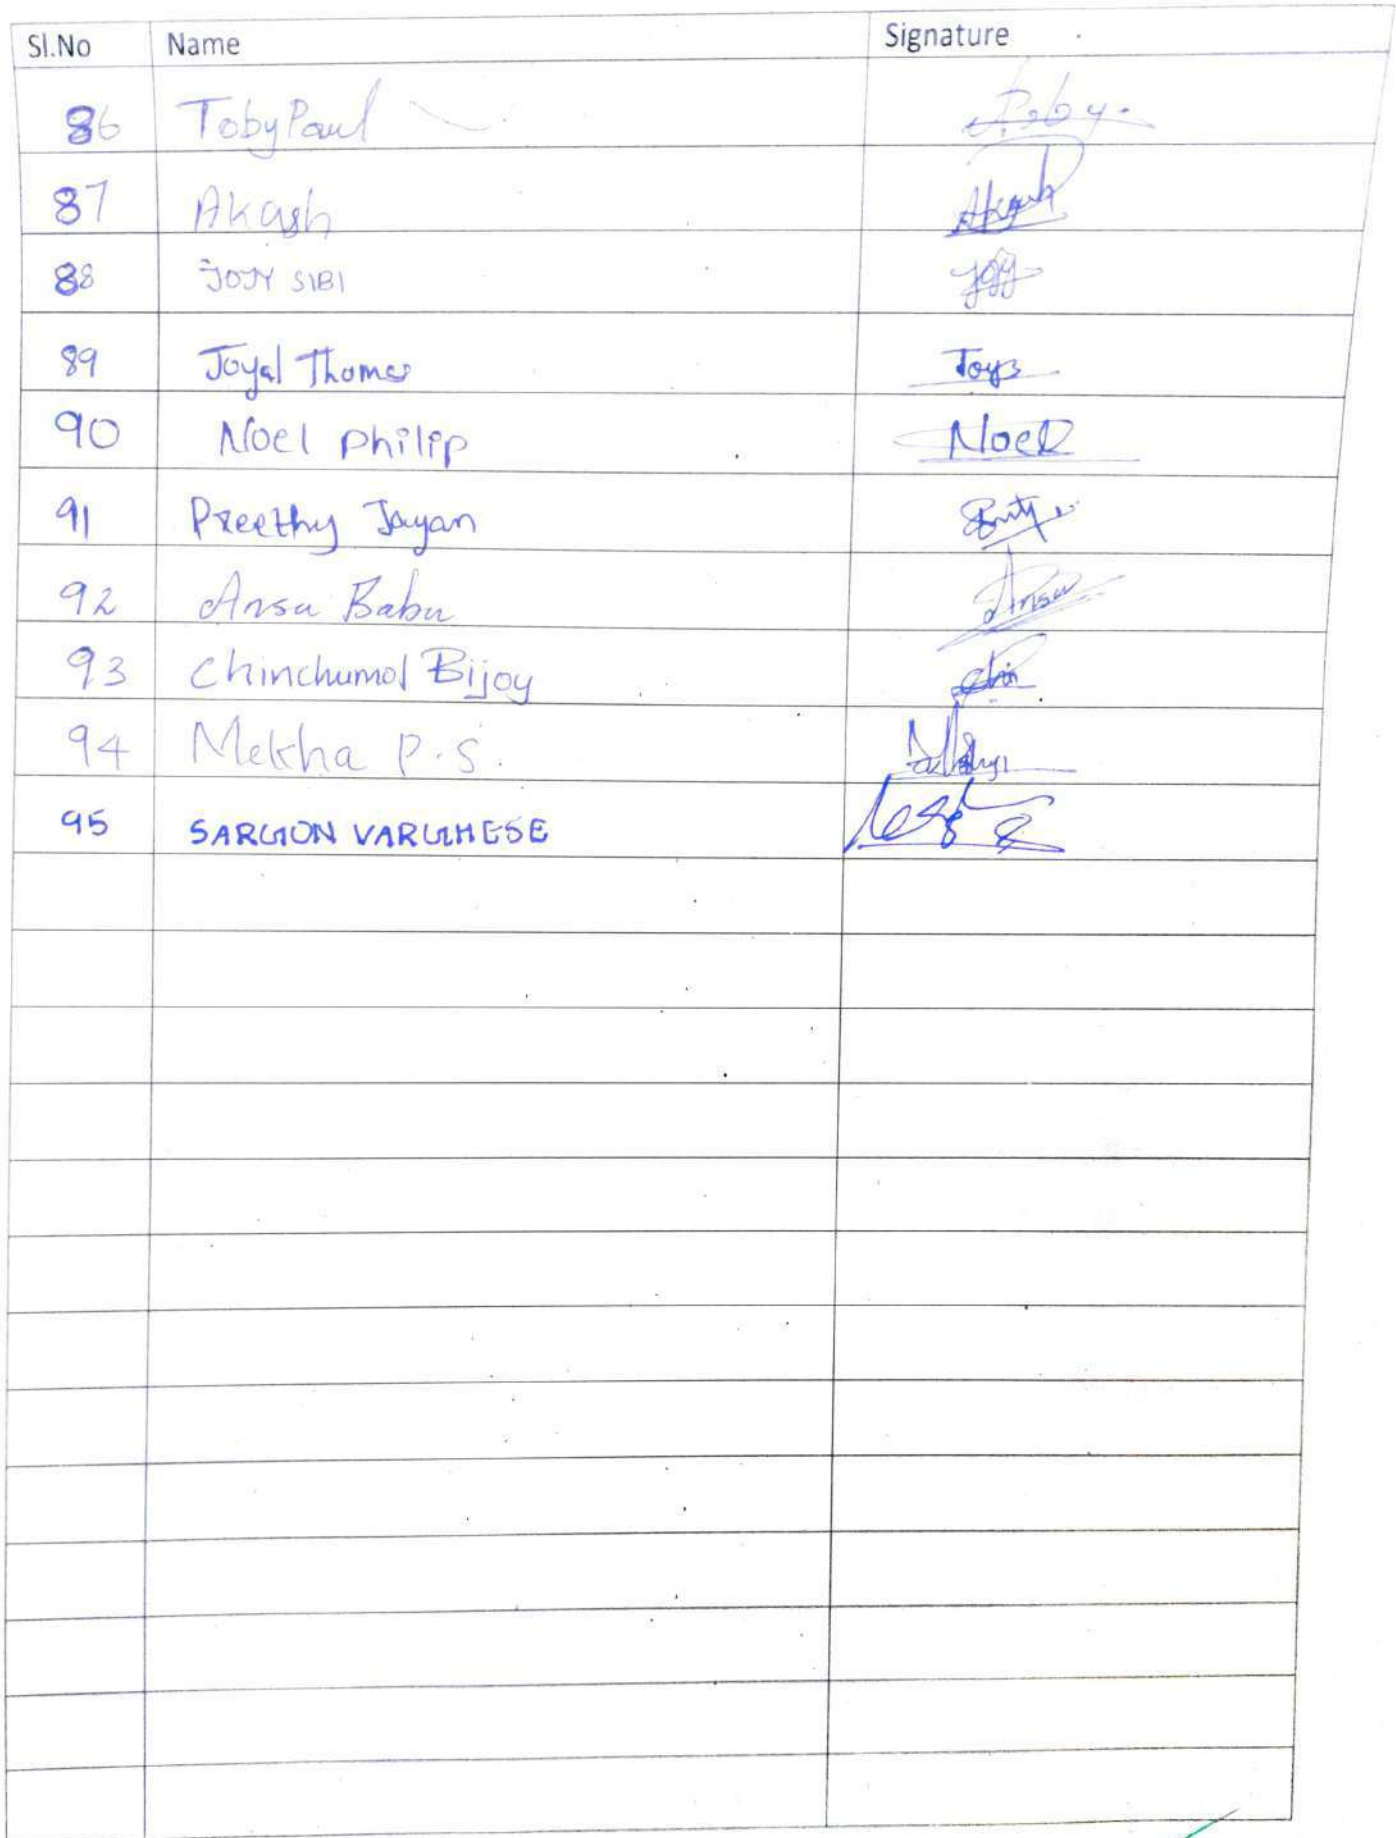 Sl.No Name Signature
86 Toby Paul Toby.
87 Akash Akash
88 JOJY SIBI Jojy
89 Joyal Thomas Joys
90 Noel Philip Noel
91 Preethy Jayan
92 Ansu Babu Ansu
93 Chinchumol Bijoy Chin
94 Mekha P.S.
95 SARGION VARGHESE